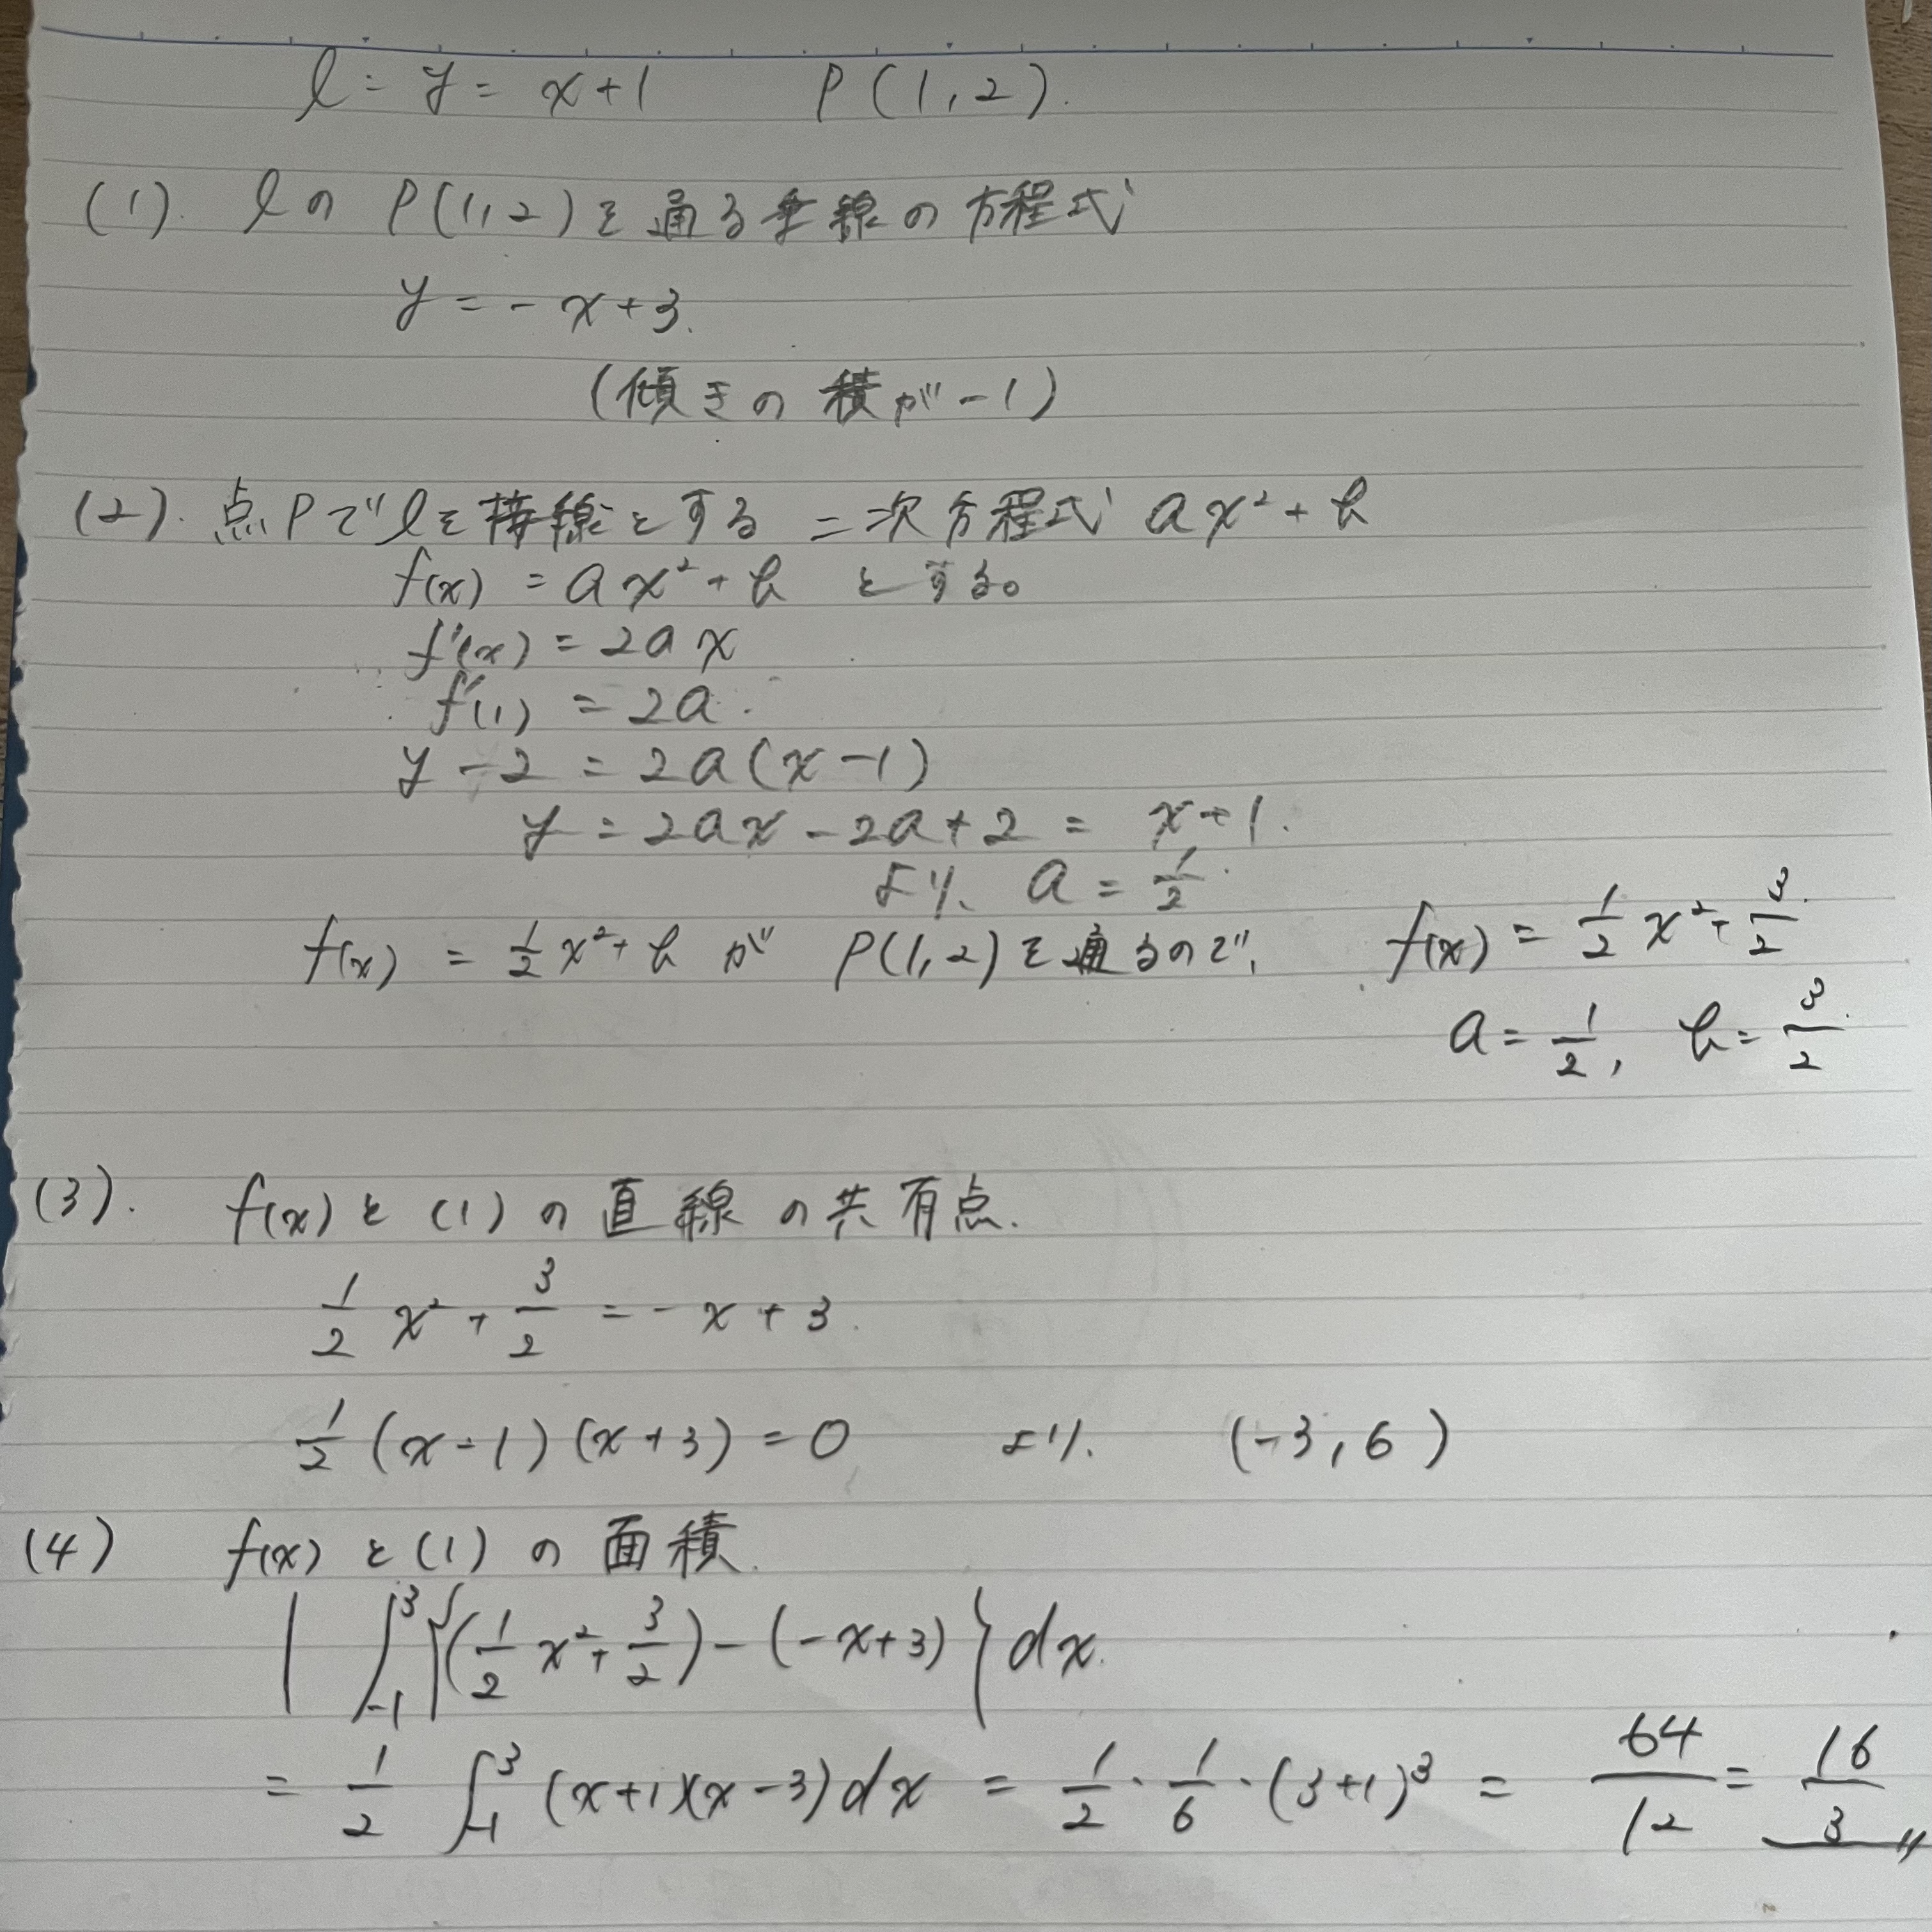 l = y = x+1 P(1,2).
(1). lの P(1,2)を通る垂線の方程式
y = -x+3.
(傾きの積が-1)
(2). 点Pでlを接線とする二次方程式 ax²+b
f(x) = ax²+b とする。
f'(x) = 2ax
f'(1) = 2a.
y-2 = 2a(x-1)
y = 2ax-2a+2 = x+1.
より、a = 1/2.
f(x) = 1/2x²+b が P(1,2)を通るので、 f(x) = 1/2x²+3/2.
a = 1/2, b = 3/2
(3). f(x)と(1)の直線の共有点.
1/2x²+3/2 = -x+3.
1/2(x-1)(x+3) = 0 より. (-3,6)
(4) f(x)と(1)の面積.
| ∫₋₁³{(1/2x²+3/2)-(-x+3)}dx.
= 1/2 ∫₋₁³(x+1)(x-3)dx = 1/2・1/6・(3+1)³ = 64/12 = 16/3〃